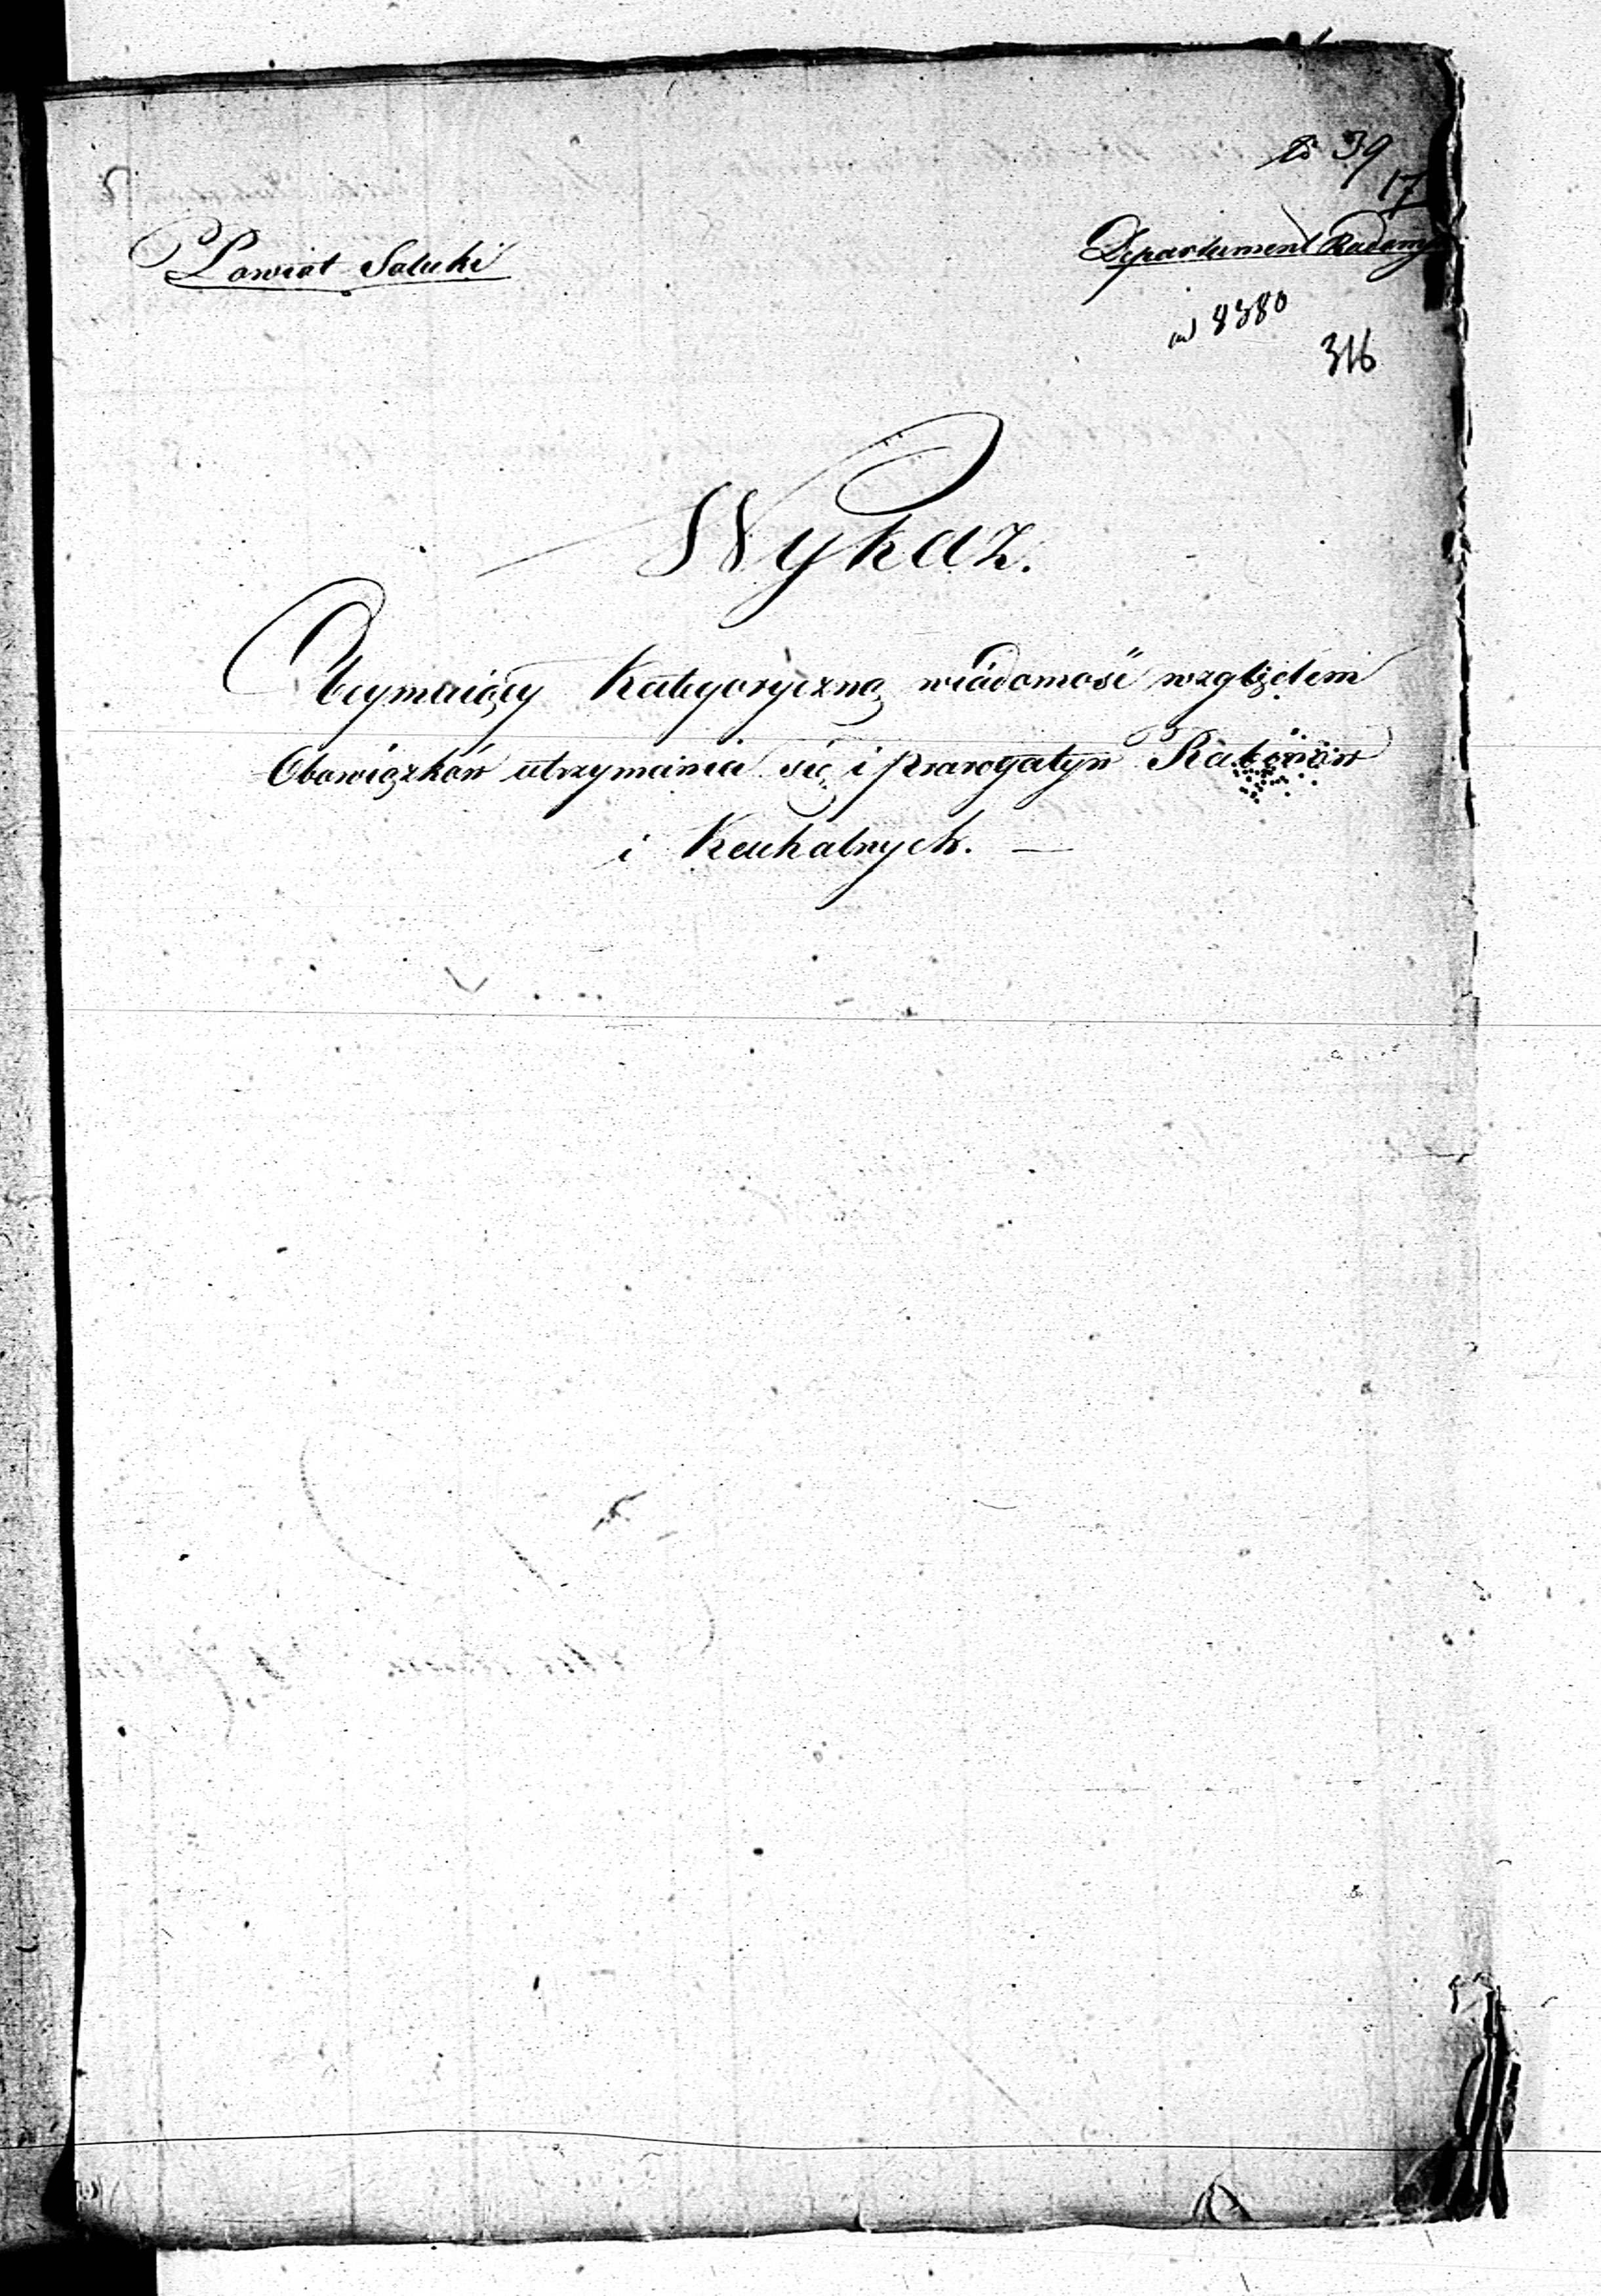 39
17
Powiat Solecki
Departament Radomski
ad 8380
316
Wykaz.
Obeymuiący Kategoryczną wiadomość względem
Obowiązków utrzymania się i prerogatyw Rabinów
i Kachalnych. —